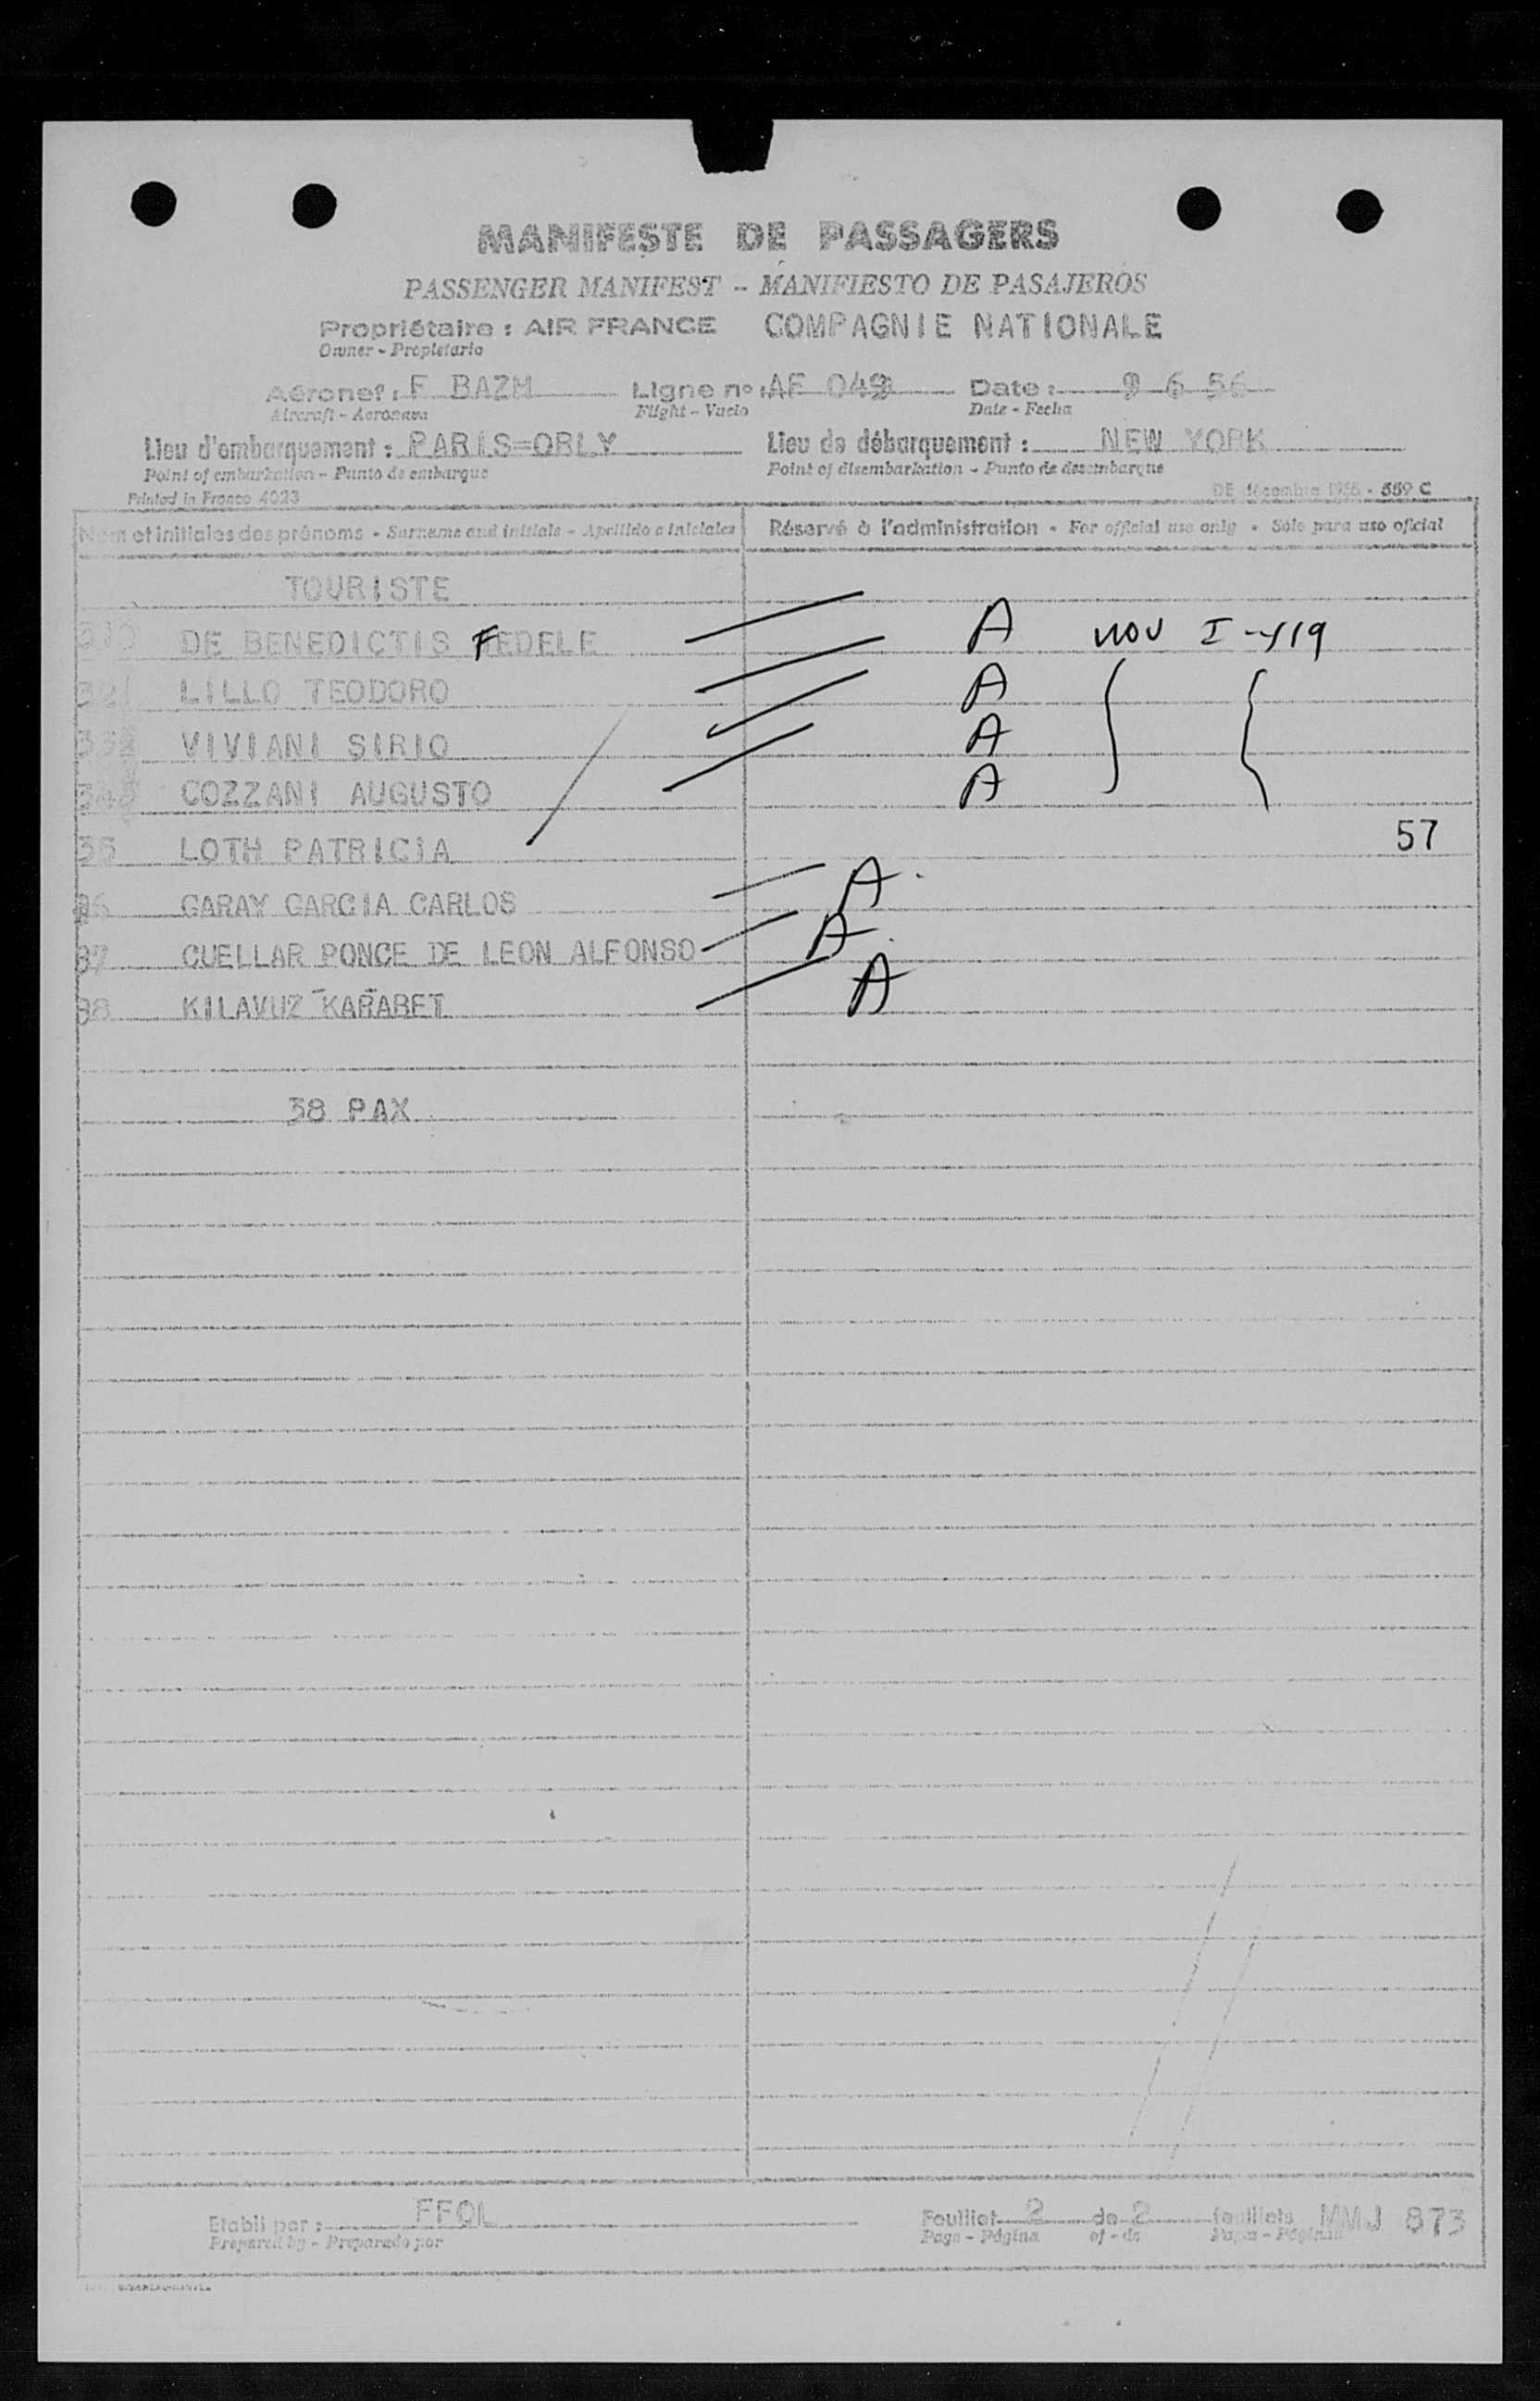 MANIFESTE DE PASSAGERS
PASSENGER MANIFEST - MANIFIESTO DE PASAJEROS
Propriétaire : AIR FRANCE COMPAGNIE NATIONALE
Owner - Propietario
Aéronef : F BAZM Ligne nº : AF 049 Date : 9 6 56
Aircraft - Aeronave Flight - Vuelo Date - Fecha
Lieu d'embarquement : PARIS=ORLY Lieu de débarquement : NEW YORK
Point of embarkation - Punto de embarque Point of disembarkation - Punto de desembarque
Printed in France 4023 DE décembre - 559 C
Nom et initiales des prénoms - Surname and initials - Apellido e iniciales Réservé à l'administration - For official use only - Sólo para uso oficial
TOURISTE
DE BENEDICTIS FEDELE A NOV I-419
LILLO TEODORO A
VIVIANI SIRIO A
COZZANI AUGUSTO A
35 LOTH PATRICIA 57
36 GARAY GARCIA CARLOS A
37 CUELLAR PONCE DE LEON ALFONSO A
38 KILAVUZ KARABET A
38 PAX
Etabli par : FFOL Feuillet 2 de 2 feuillets MMJ 873
Prepared by - Preparado por Page - Página of - de Pages - Páginas